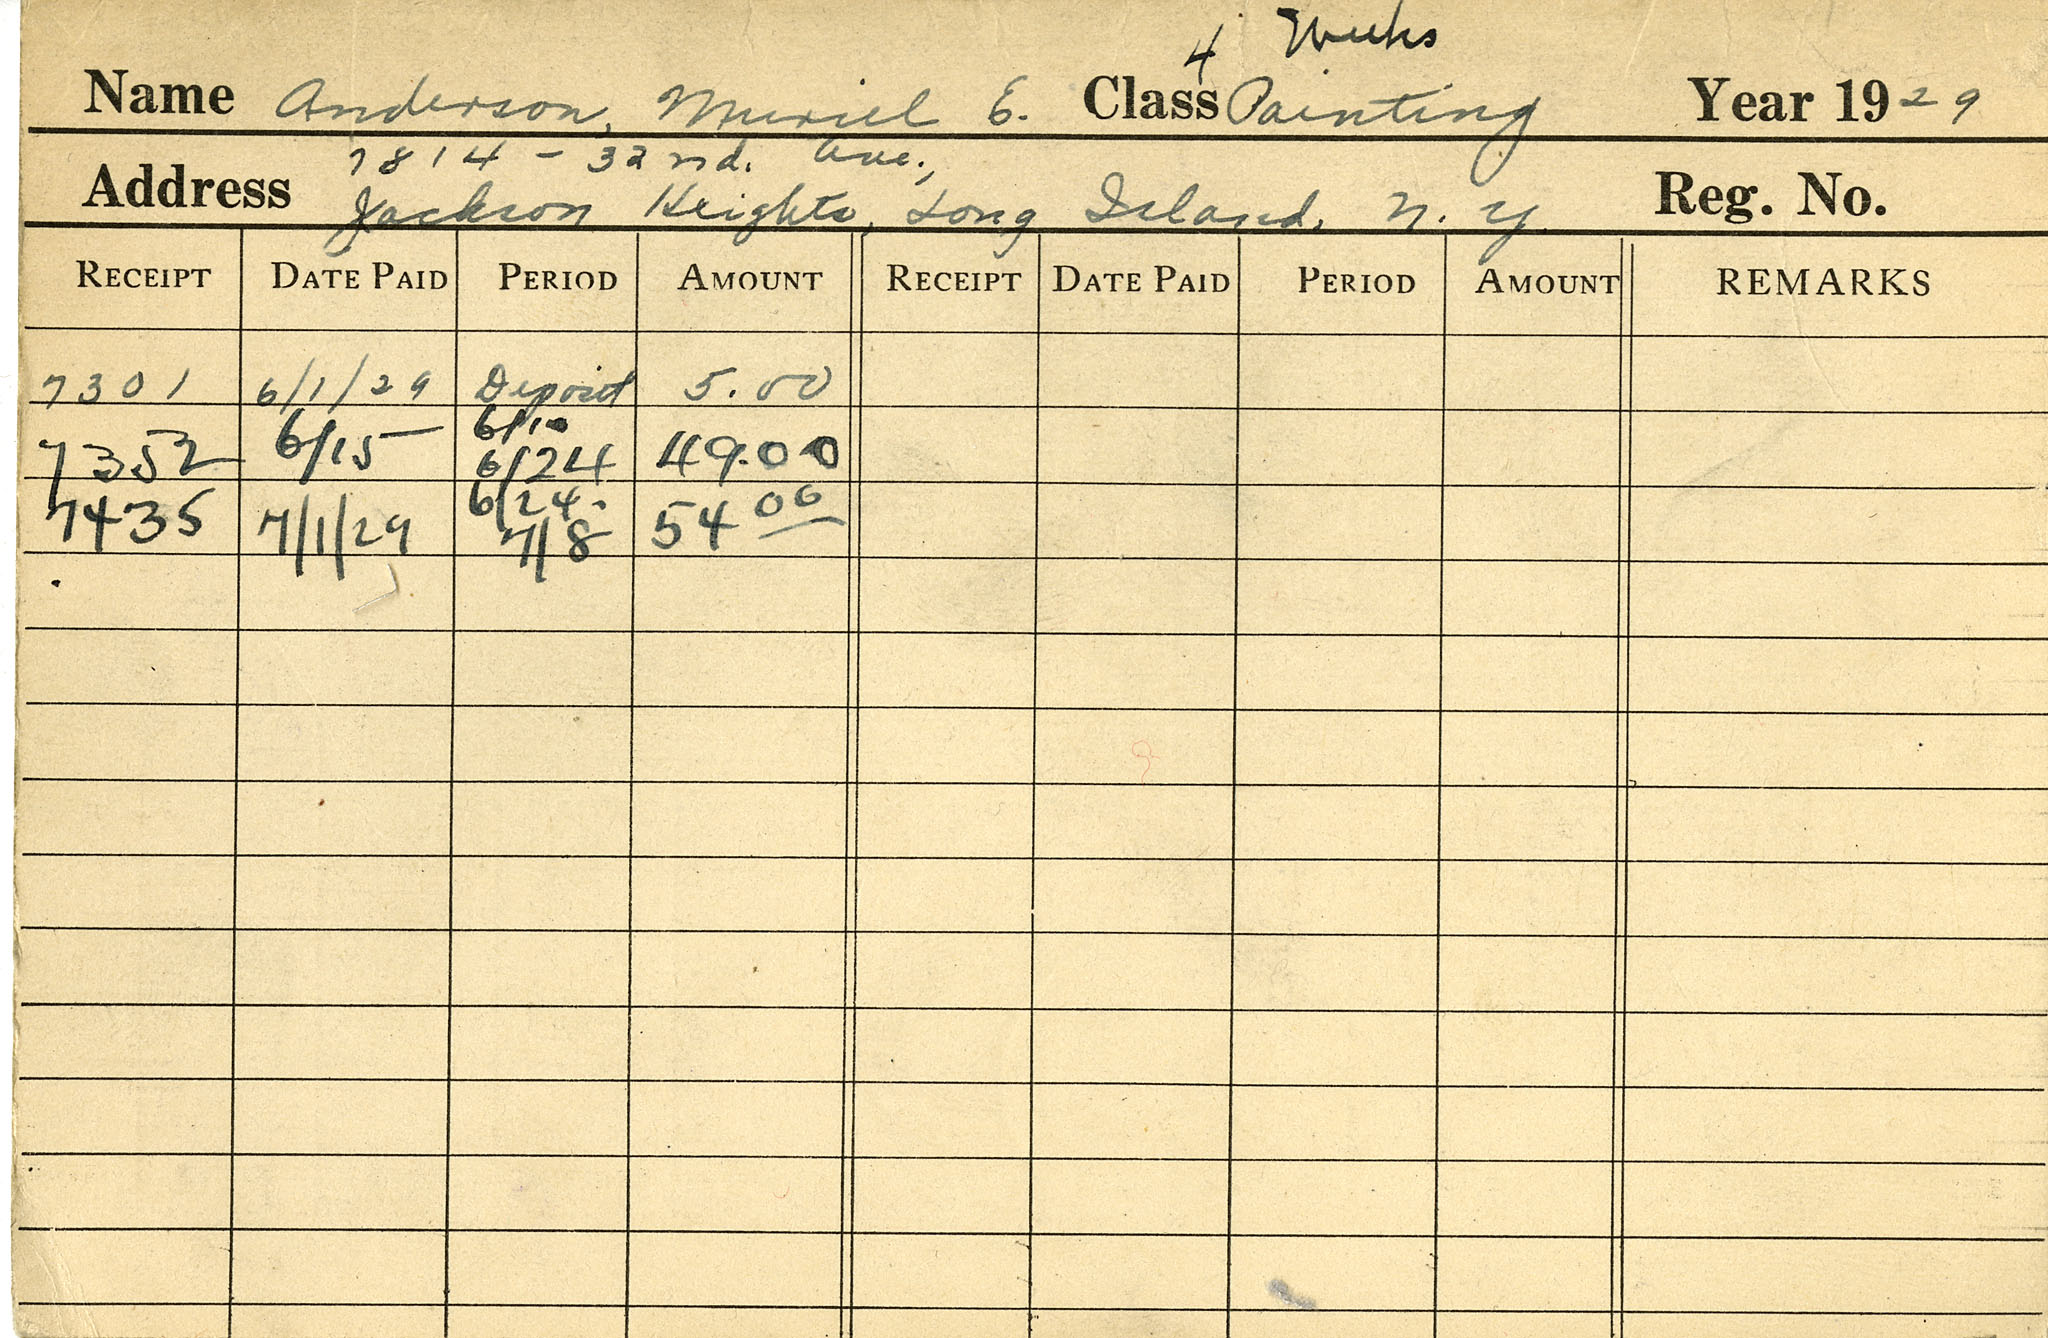 4 Weeks
Name Anderson, Muriel E. Class Painting Year 1929
7814 - 32nd. Ave.,
Address Jackson Heights, Long Island, N.Y. Reg. No.
RECEIPT DATE PAID PERIOD AMOUNT RECEIPT DATE PAID PERIOD AMOUNT REMARKS
7301 6/1/29 Deposit 5.00
6/10
7352 6/15 6/24 49.00
6/24-
7435 7/1/29 7/8 54 00